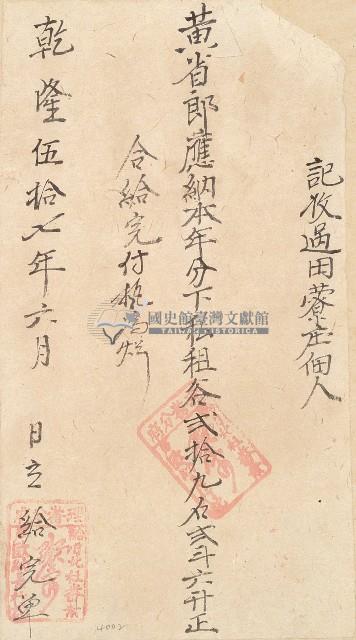 記收過田藔庄佃人
黃省郎應納本年分下私租谷弍拾九石弍斗六升正
合給完付
乾隆伍拾七年六月 日立給完單
國史館臺灣文獻館
TAIWAN HISTORICA
4002